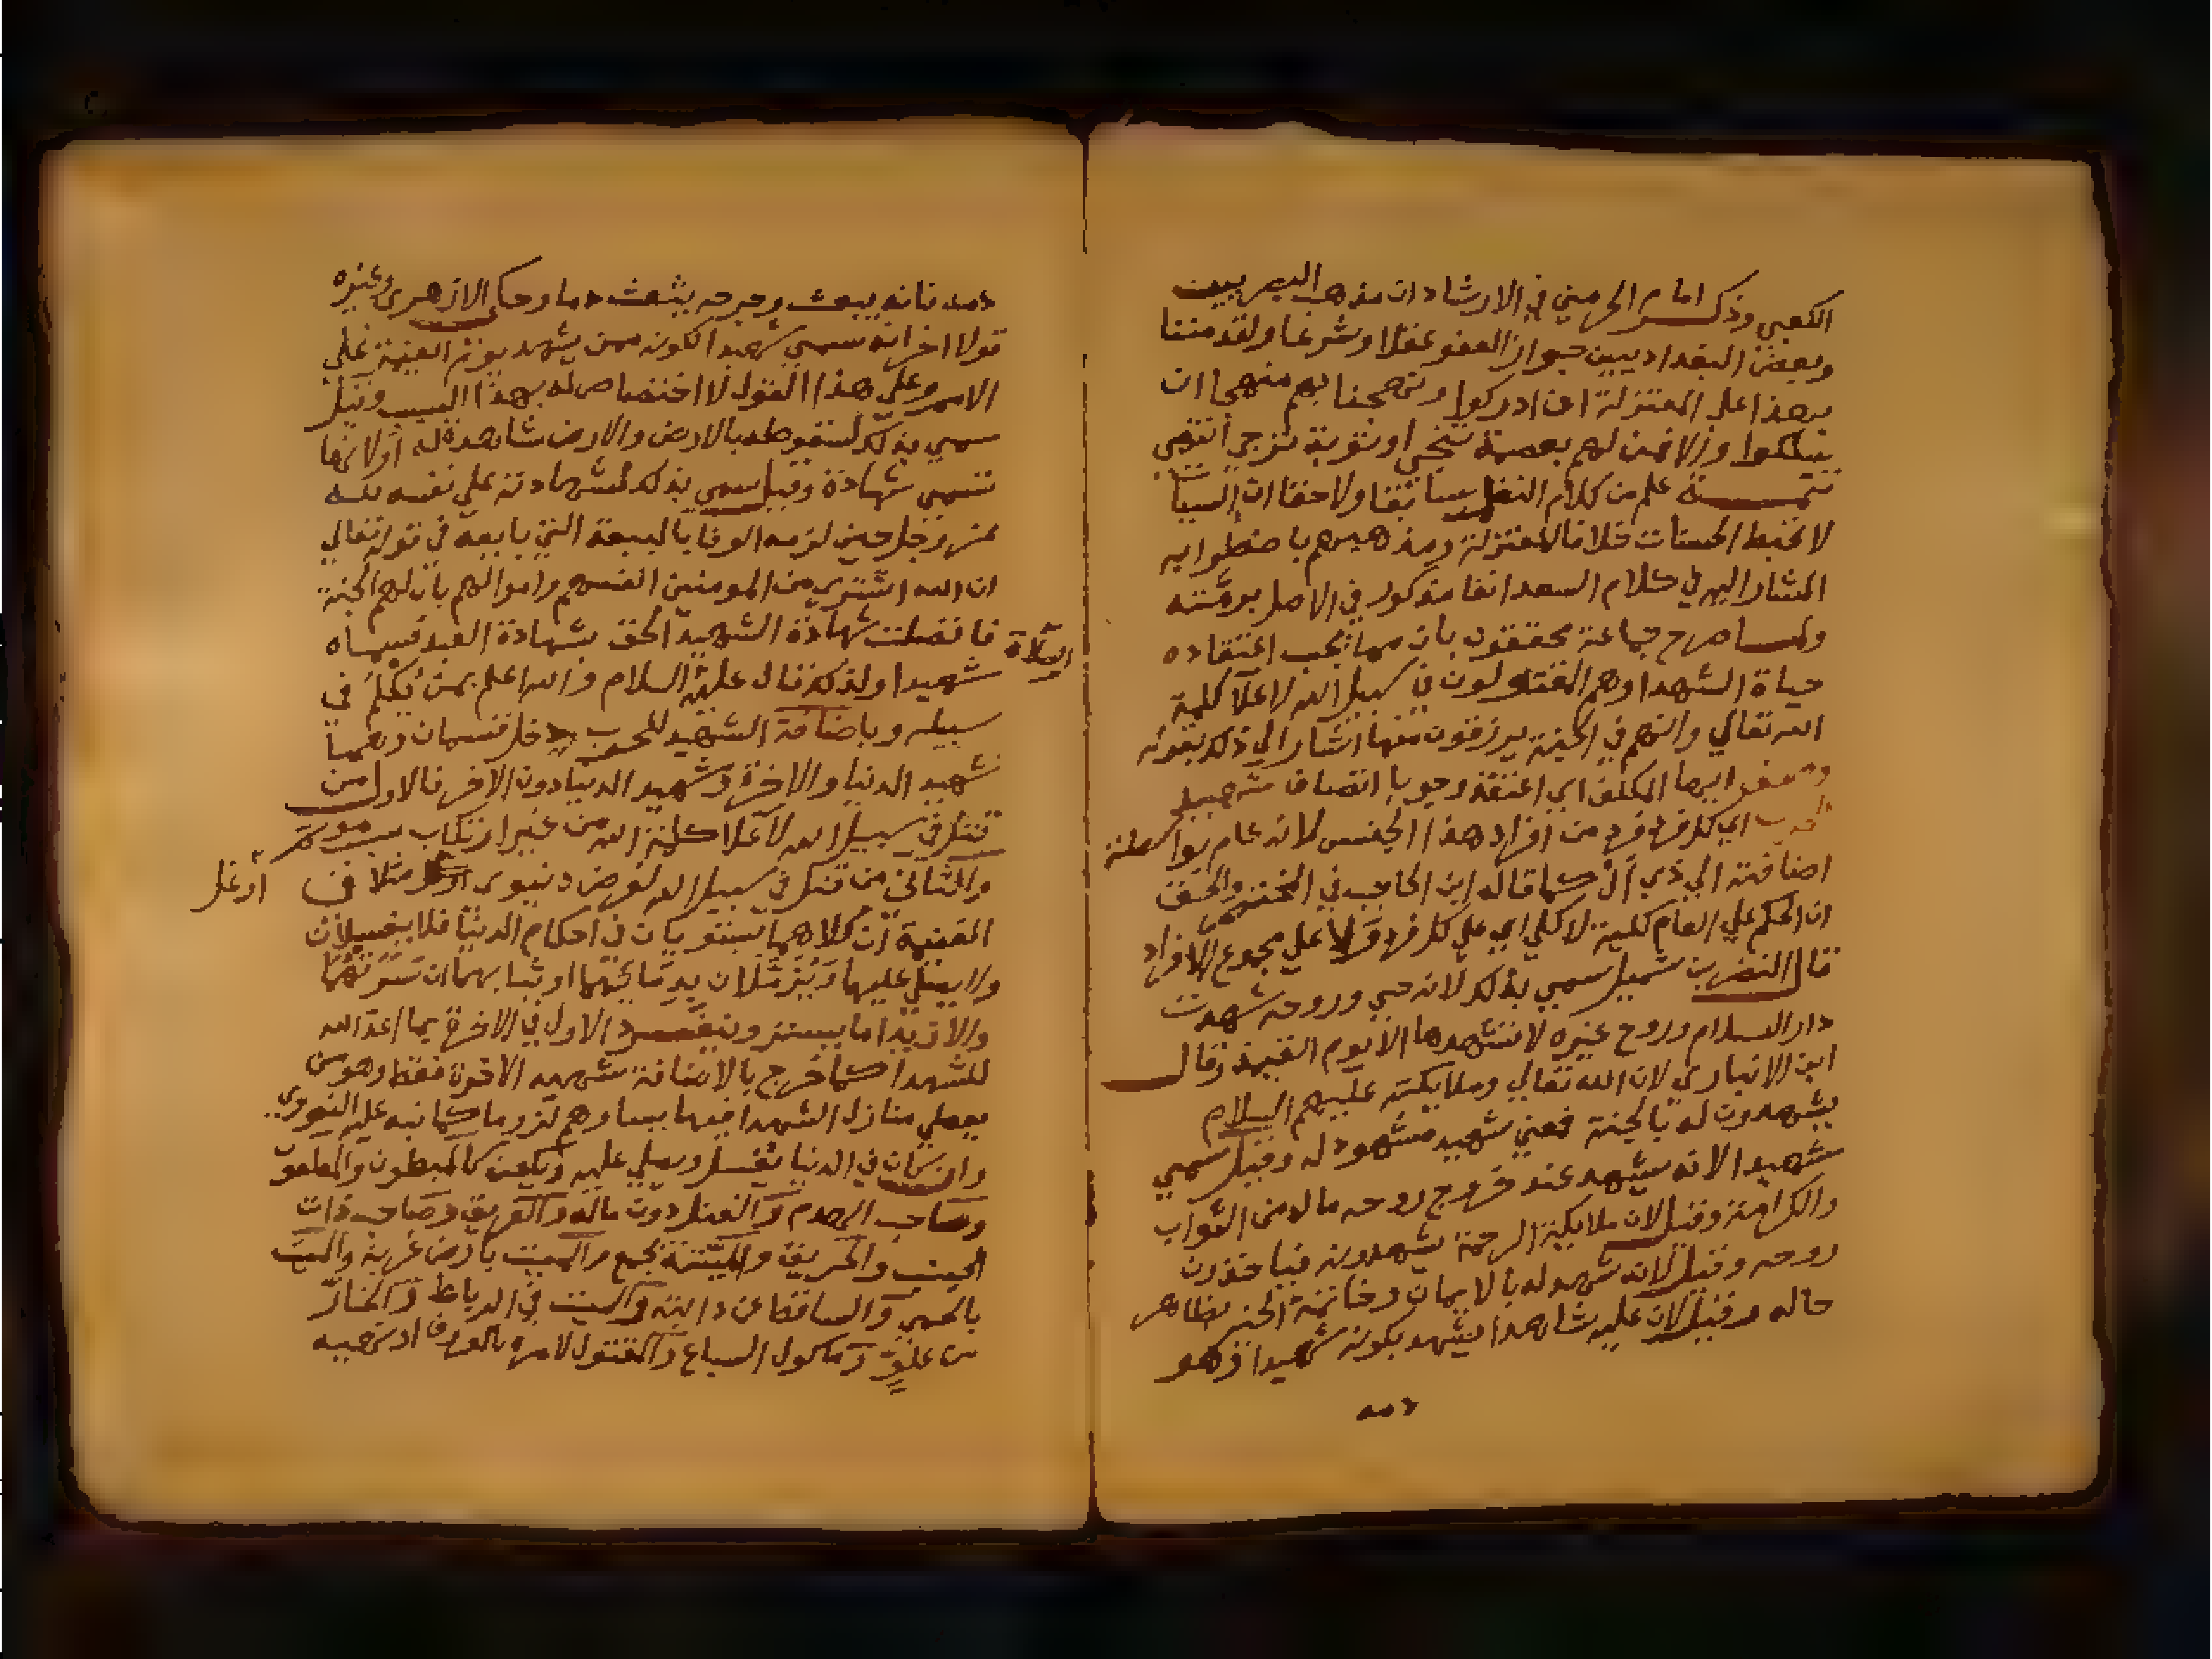 الكعبي وذكر امام الحرمين في الارشاد ان مذهب البصريين
وبعض البغداديين جواز العفو عقلا وشرعا ولقد مننا
بهذا على المعتزلة ان ادركوا ونهجنا بهم منهجا ان
سلكوا والا فمن لهم بعصمة تنجي او توبة ترجى انتهي
تتمة علم من كلام سابقا ولاحقا ان السيآت
لا تحبط الحسنات خلافا للمعتزلة ومذهبهم باضطرابه
المشار اليه في كلام السعد انفا مذكور في الاصل برمته
ولما صرح جماعة محققون بان مما يجب اعتقاده
حياة الشهدا وهم المقتولون في سبيل الله لاعلا كلمة
الله تعالي وانهم في الجنة يرزقون منها اشار الي ذلك بقوله
وصف ايها المكلف اي اعتقد وجوبا اتصاف شهيد
الحرب اي كل فرد فرد من افراد هذا الجنس لانه عام بواسطة
اضافته الي ذي ال كما قاله ابن الحاجب في المختصر والحق
ان الحكم علي العام كلية لا كلي اي علي كل فرد فرد لا علي مجموع الافراد
قال النضر بن شميل سمي بذلك لانه حي وروحه شهدت
دار السلام وروح غيره لا تشهدها الا يوم القيمة وقال
ابن الانباري لان الله تعالي وملايكته عليهم السلام
يشهدون له بالجنة فمعني شهيد مشهود له وقيل سمي
شهيدا لانه يشهد عند خروج روحه ما له من الثواب
والكرامة وقيل لان ملايكة الرحمة يشهدونه فياخذون
روحه وقيل لانه شهد له بالايمان وخاتمة الخير بظاهر
حاله وقيل لان عليه شاهدا يشهد بكونه شهيدا وهو
دمه
دمه فانه يبعث وجرحه يثعث دما وحكي الازهري وغيره
قولا اخر انه سمي شهيدا لكونه ممن يشهد يوم القيمة علي
الامم وعلي هذا القول لا اختصاص له بهذا السبب وقيل
سمي بذلك لسقوطه بالارض والارض شاهدة له او لانها
تسمى شهادة وقيل سمي بذلك لشهادته علي نفسه لله
عز وجل حين لزمه الوفا بالبيعة التي بايعه في قوله تعالي
ان الله اشتري من المومنين انفسهم واموالهم بان لهم الجنة
فاتصلت شهادة الشهيد الحق بشهادة العبد فسماه
شهيدا ولذلك قال عليه السلام والله اعلم بمن يكلم في
الصلاة
سبيله وباضافة الشهيد للحرب دخل قسمان وهما
شهيد الدنيا والاخرة وشهيد الدنيا دون الاخرة فالاول من
قتل في سبيل الله لاعلا كلمة الله من غير ارتكاب
والثاني من قتل في سبيل الله لغرض دنيوي مثلا في
او غل
الغنيمة ان كلاهما يستويان في احكام الدنيا فلا يغسلان
ولا يصلي عليهما ويزملان بدمائهما وثيابهما ان سترتهما
والا زيد ما يستر وينفرد الاول في الاخرة بما اعد الله
للشهدا كما خرج بالاضافة شهيد الاخرة فقط وهو من
يعطي منازل الشهدا فيها كما نبه عليه النووي
وان كان في الدنيا يغسل ويصلي عليه ويكفن كالمبطون والمطعون
وصاحب الهدم والقتل دون ماله والغريق وصاحب ذات
الجنب والحريق والميتة بجمع والميت بارض غربة والميت
بالحمي والساقط عن دابته والميت في الرباط والخار
من علو وماكول السباع والمقتول لامره بالمعروف او نهيه